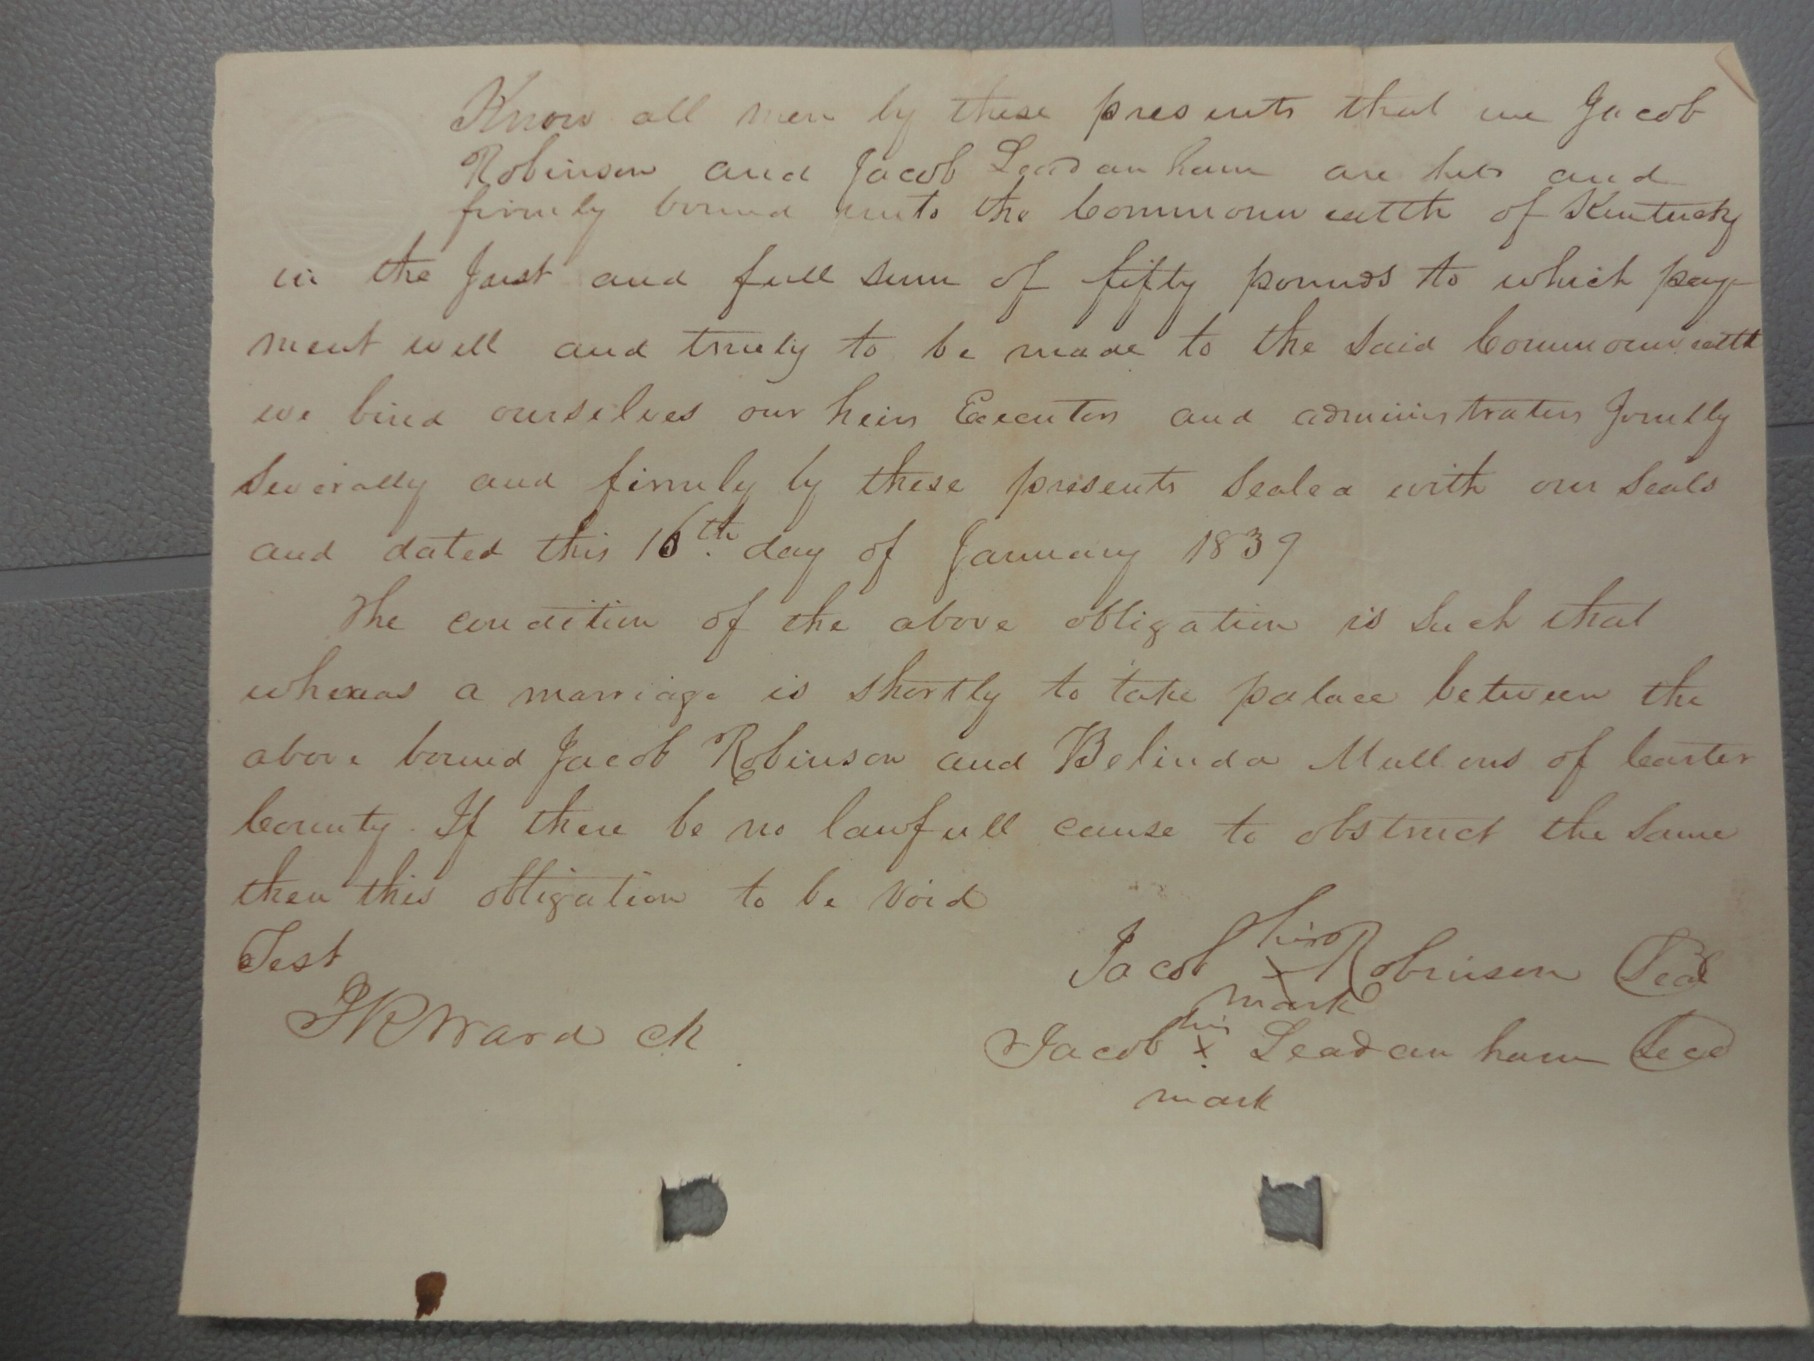 Know all men by these presents that we Jacob
Robinson and Jacob Leadanham are held and
firmly bound unto the Commonwealth of Kentucky
in the Just and full sum of fifty pounds to which pay-
ment well and truely to be made to the said Commonwealth
we bind ourselves our heirs Executors and administrators Jointly
Severally and firmly by these presents Sealed with our Seals
and dated this 16th. day of January 1839
The condition of the above obligation is Such that
whereas a marriage is shortly to take palace between the
above bound Jacob Robinson and Belinda Mullens of Carter
County. If there be no lawfull cause to obstruct the Same
then this obligation to be void
Test
Jacob his x mark Robinson Seal
J R Ward ck
Jacob his x mark Leadanham Seal